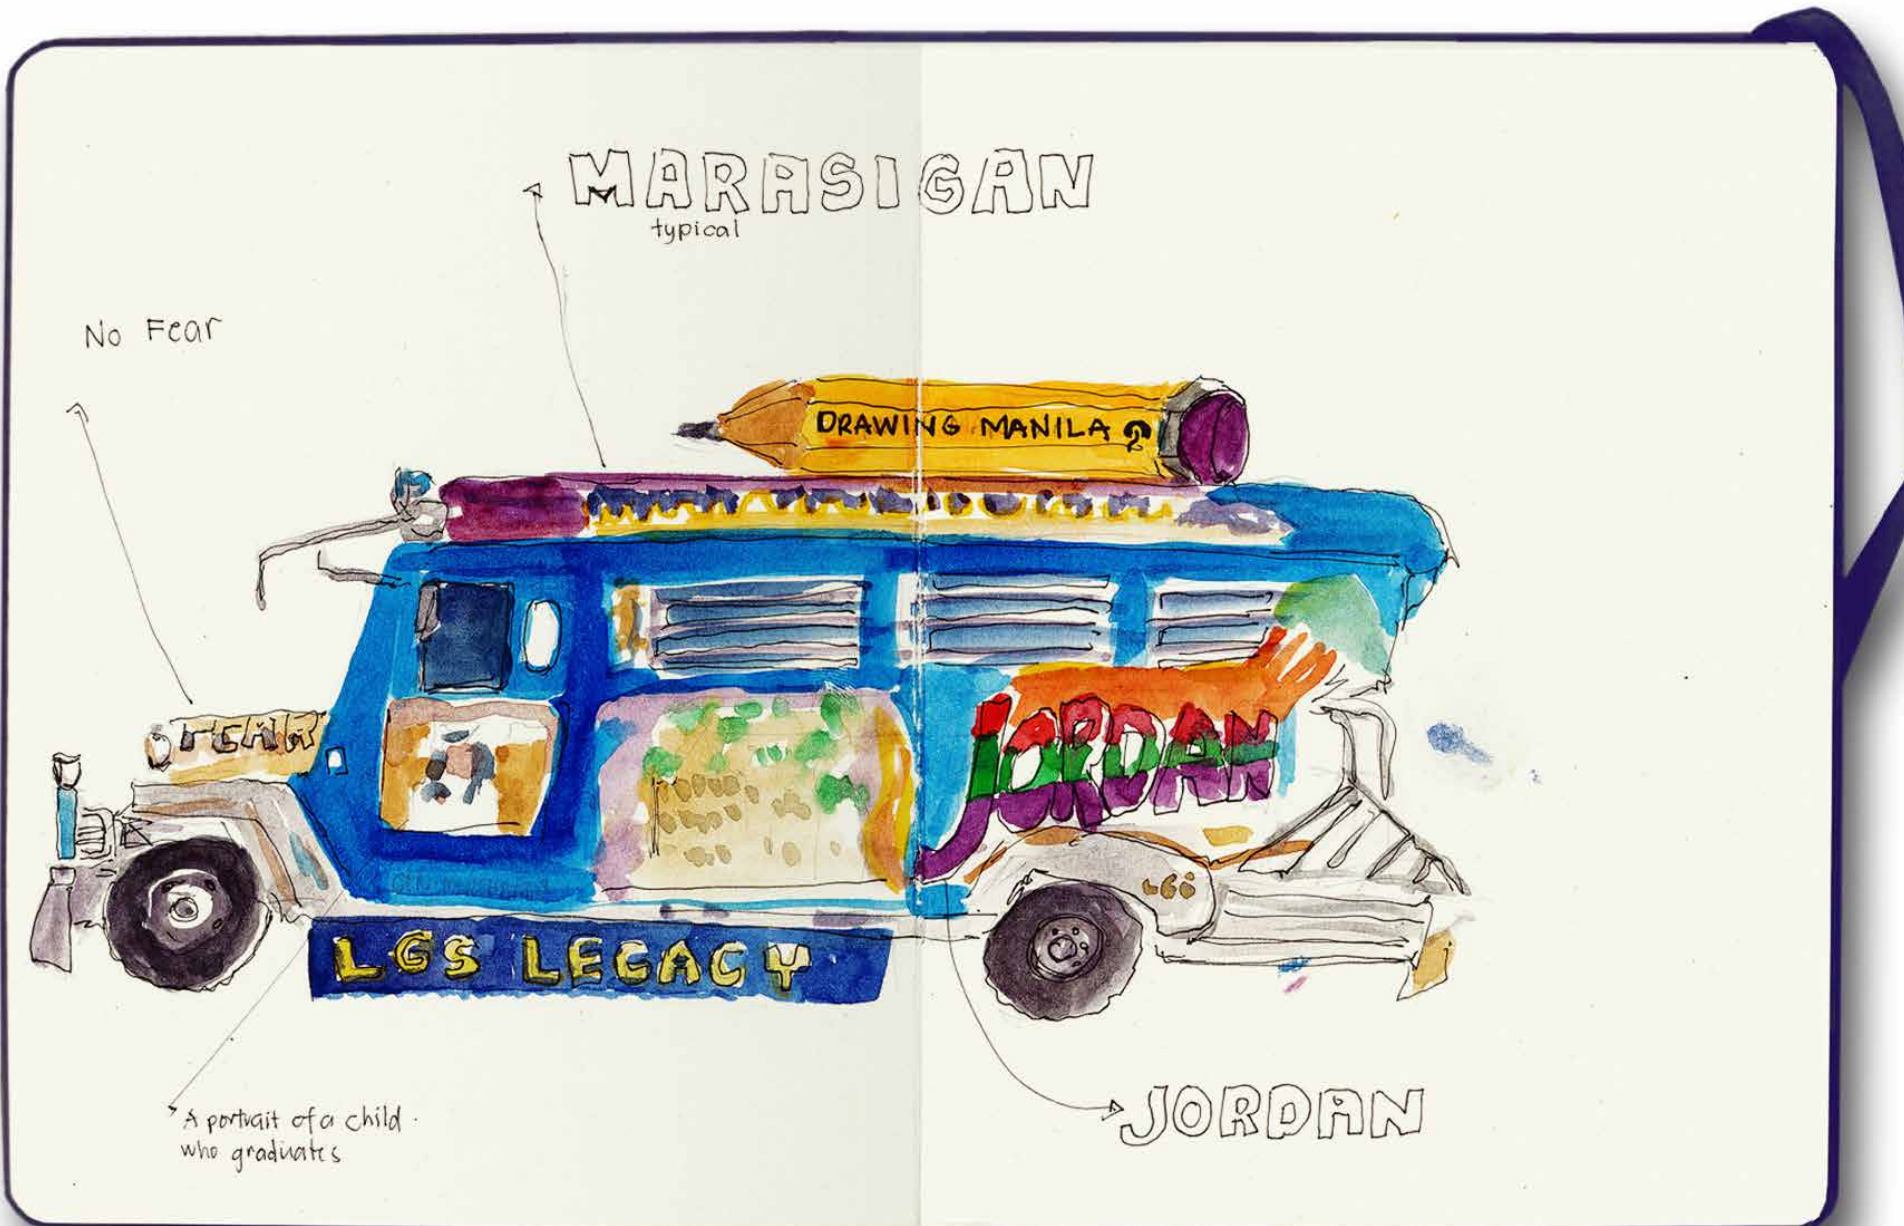 MARASIGAN
typical
No Fear
DRAWING MANILA
FEAR
JORDAN
LGS LEGACY
A portrait of a child
who graduates
JORDAN